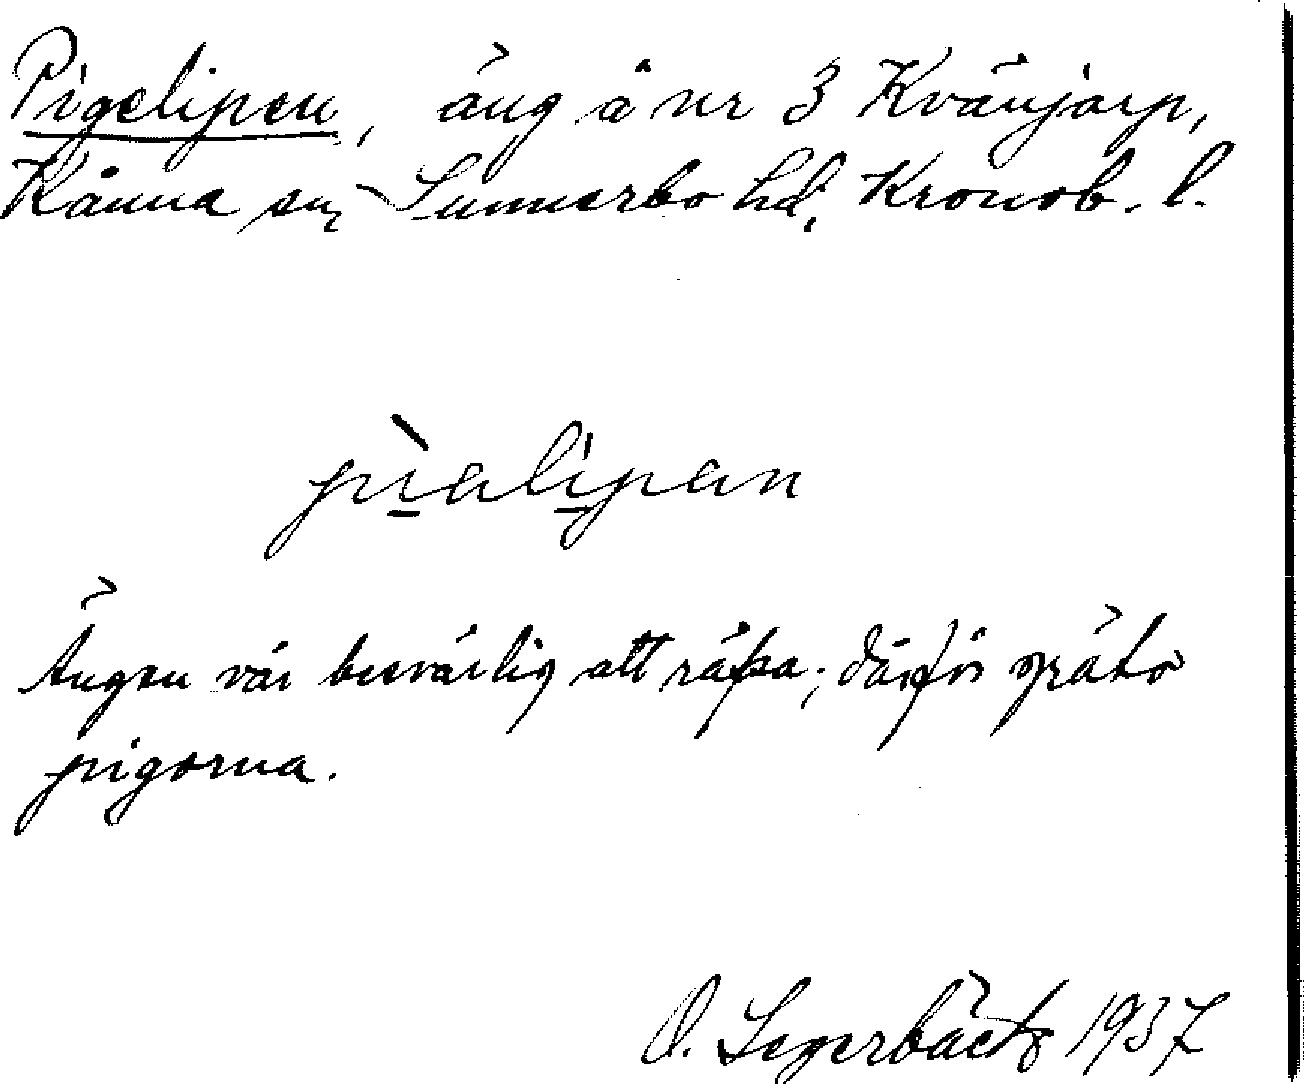 Pigelipen, äng å nr 3 Kvänjarp,
Kånna sn, Sunnerbo hd, Kronob. l.
pìalipan
Ängen var besvärlig att räfsa; därför gräto
pigorna.
O. Segerbäck 1937